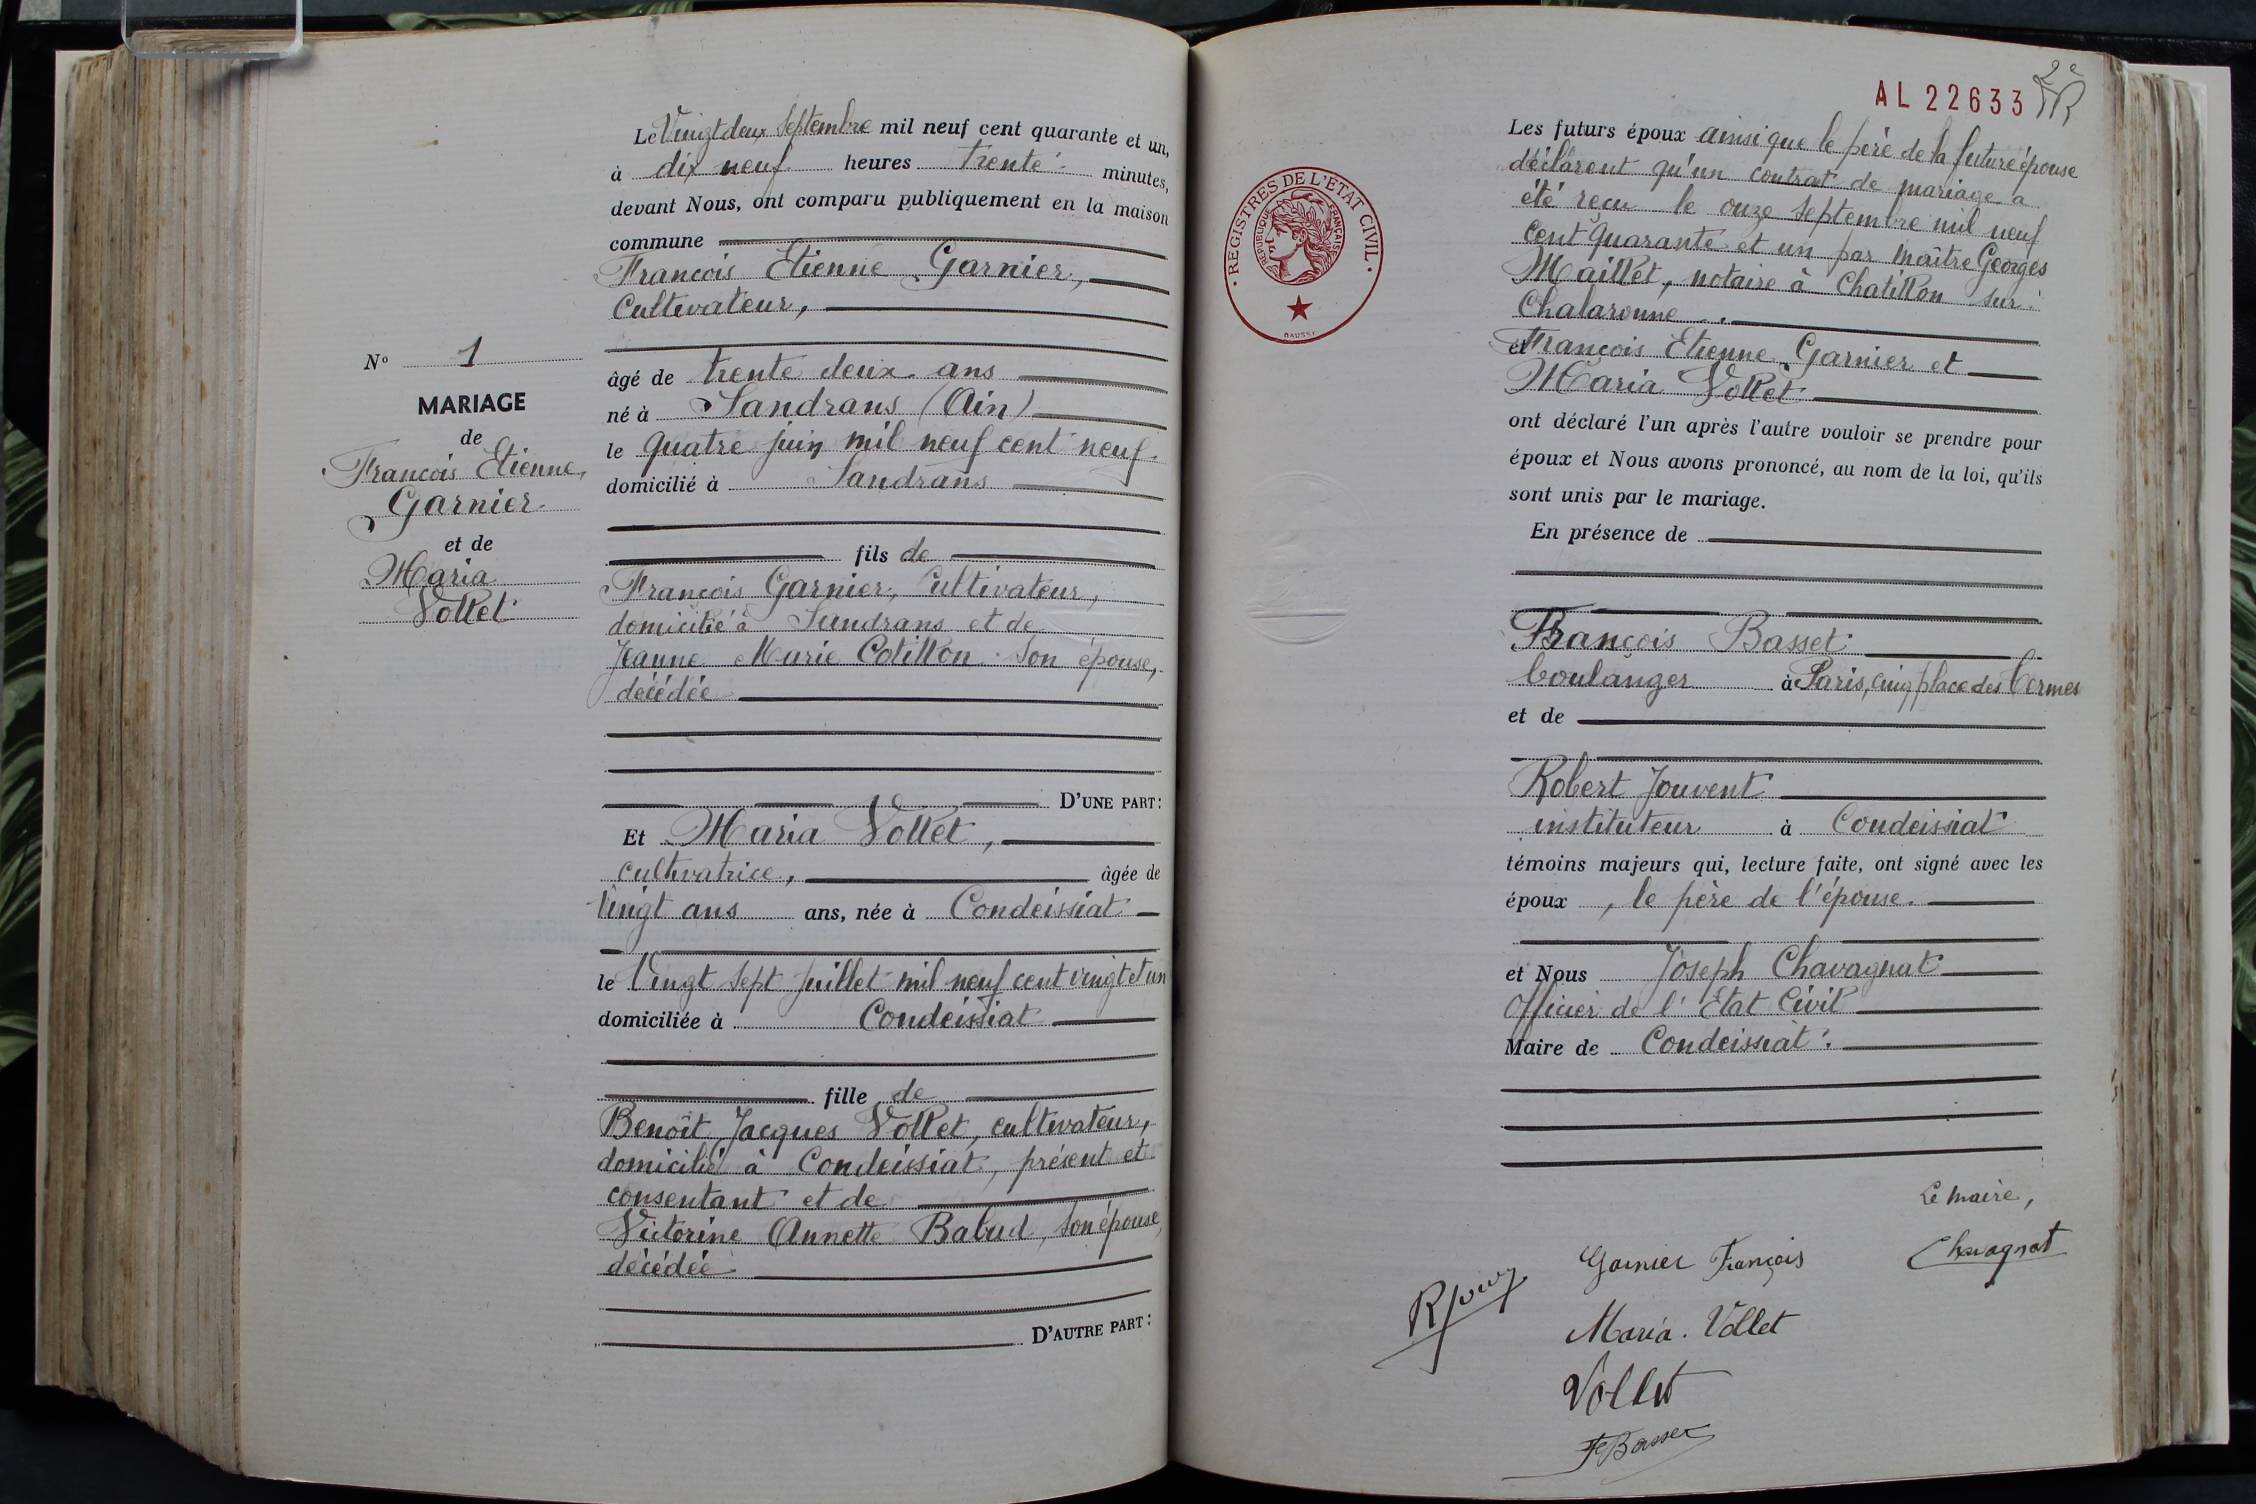 N° 1
MARIAGE
de
François Etienne
Garnier
et de
Maria
Vollet
Le Vingt deux Septembre mil neuf cent quarante et un,
à dix neuf heures trente minutes,
devant Nous, ont comparu publiquement en la maison
commune
François Etienne Garnier,
Cultivateur,
âgé de trente deux ans
né à Sandrans (Ain)
le quatre juin mil neuf cent neuf
domicilié à Sandrans
fils de
François Garnier, Cultivateur,
domicilié à Sandrans et de
Jeanne Marie Cotillon son épouse,
décédée
D'UNE PART:
Et Maria Vollet,
cultivatrice, âgée de
Vingt ans ans, née à Condeissiat
le Vingt sept Juillet mil neuf cent vingt et un
domiciliée à Condeissiat
fille de
Benoît Jacques Vollet, cultivateur,
domicilié à Condeissiat, présent et
consentant et de
Victorine Annette Babud, son épouse,
décédée
D'AUTRE PART:
AL 22633
2e
REGISTRES DE L'ETAT CIVIL
REPUBLIQUE FRANÇAISE
DAUSSY
Les futurs époux ainsi que le père de la future épouse
déclarent qu'un contrat de mariage a
été reçu le onze septembre mil neuf
cent quarante et un par Maître Georges
Maillet, notaire à Chatillon sur
Chalaronne.
et François Etienne Garnier et
Maria Vollet
ont déclaré l'un après l'autre vouloir se prendre pour
époux et Nous avons prononcé, au nom de la loi, qu'ils
sont unis par le mariage.
En présence de
François Basset
boulanger à Paris, cinq place des Termes
et de
Robert Jouvent
instituteur à Condeissiat
témoins majeurs qui, lecture faite, ont signé avec les
époux, le père de l'épouse.
et Nous Joseph Chavagnat
Officier de l'Etat Civil
Maire de Condeissiat.
Le Maire,
Chavagnat
Garnier François
Maria. Vollet
Vollet
Fs Basset